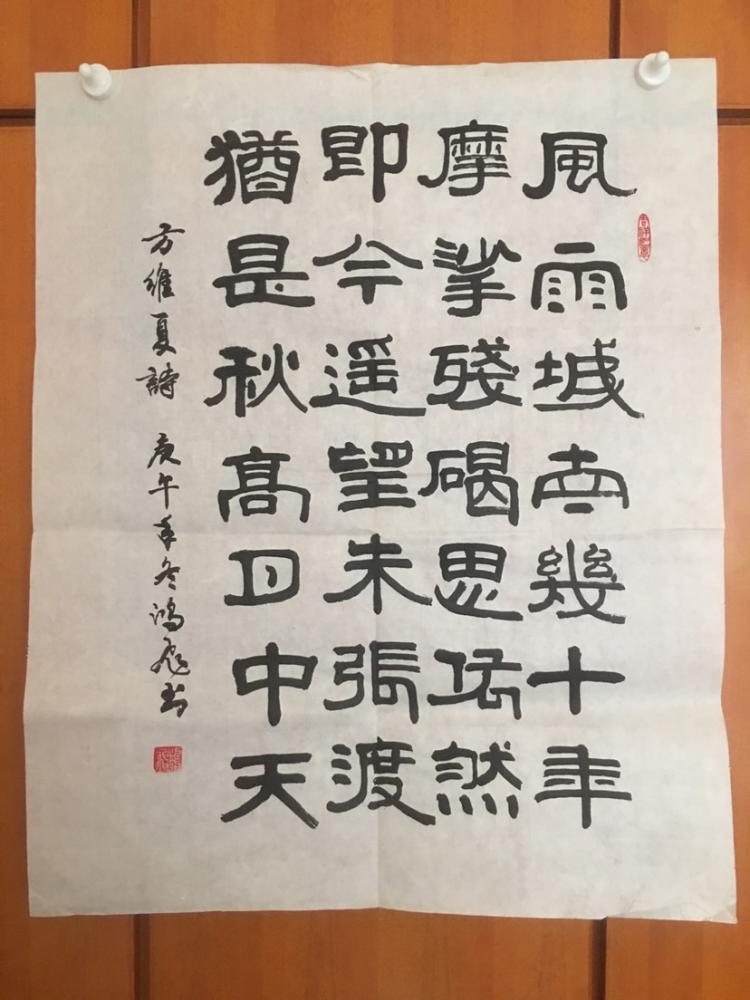 風雨城南幾十年
摩挲殘碣思然
即今遥望朱張渡
猶是秋髙月中天
方維夏詩 庚午年冬鴻飛书